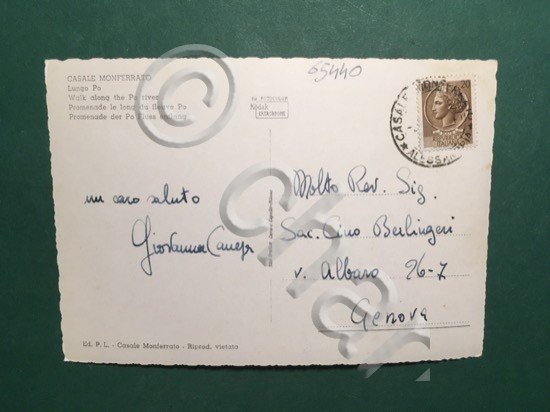 65440
CASALE MONFERRATO
Lungo Po
Walk along the Po river
Promenade le long du fleuve Po
Promenade der Po Fluss entlang
Kodak
EKTACHROME
CASALE MONFERRATO
ALESSANDRIA
un caro saluto
Giovanna Canepa
Molto Rev. Sig.
Sac. Cino Berlingeri
v. Albaro 26-7
Genova
Ed. P. L. - Casale Monferrato - Riprod. vietata